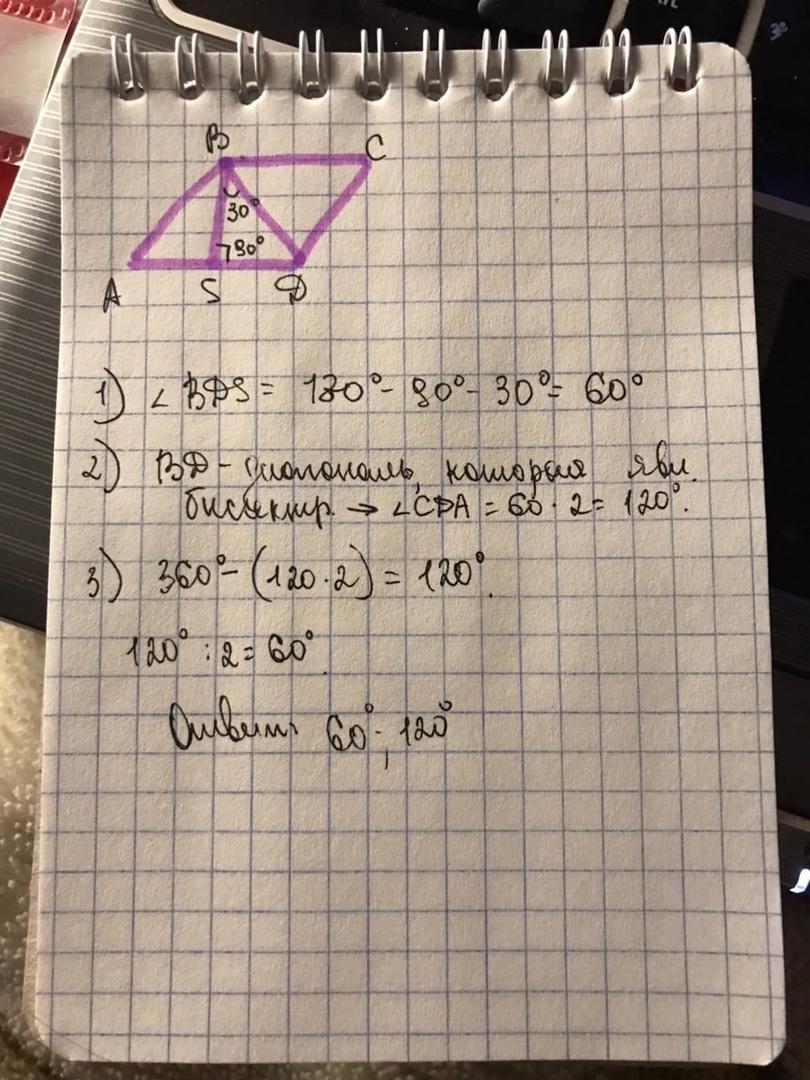 B
C
30°
90°
A
S
D
1) ∠BDS = 180° - 90° - 30° = 60°
2) BD - диагональ, которая явл.
бисектр. → ∠CDA = 60 · 2 = 120°.
3) 360° - (120 · 2) = 120°.
120° : 2 = 60°.
Ответ: 60°; 120°